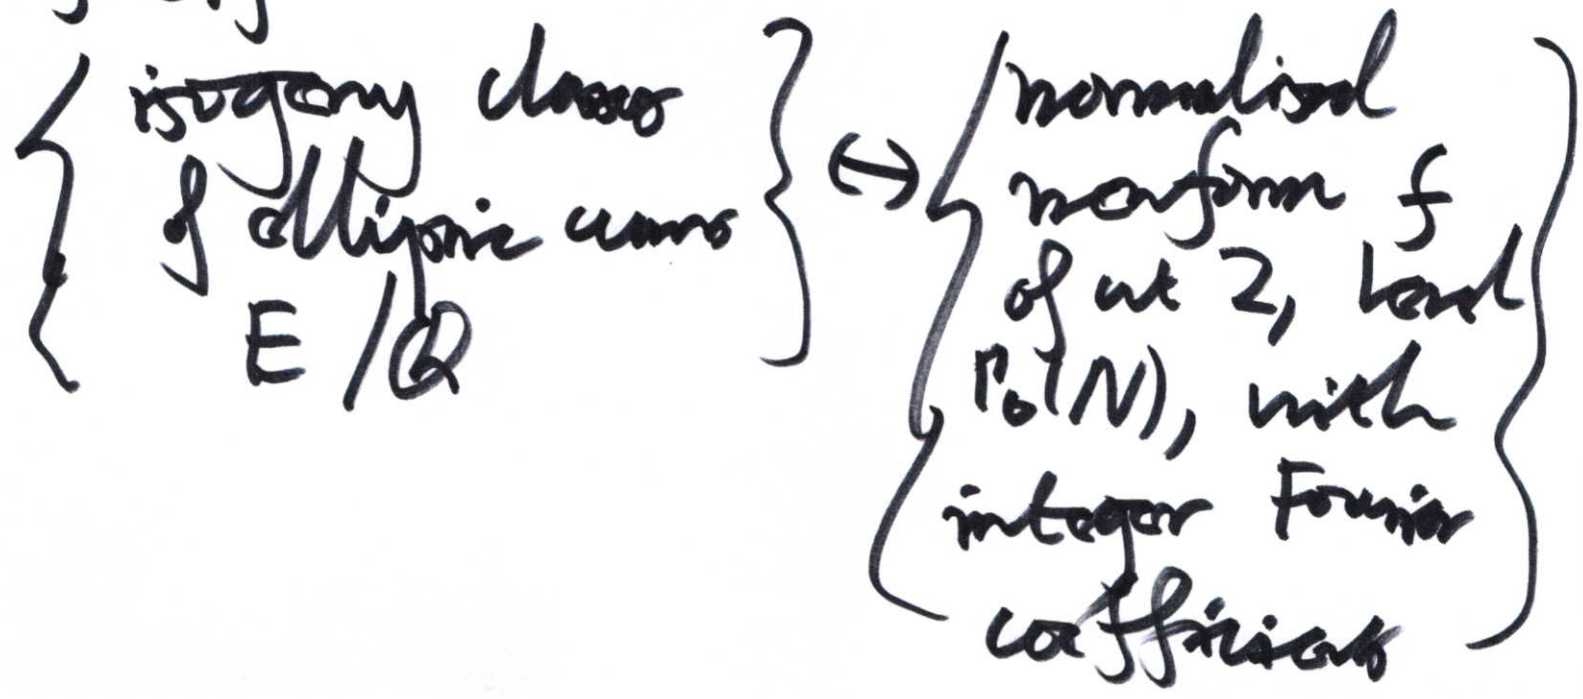 { isogeny classes
of elliptic curves
E/Q }
↔
{ normalised
newform f
of wt 2, level
Γ₀(N), with
integer Fourier
coefficients }